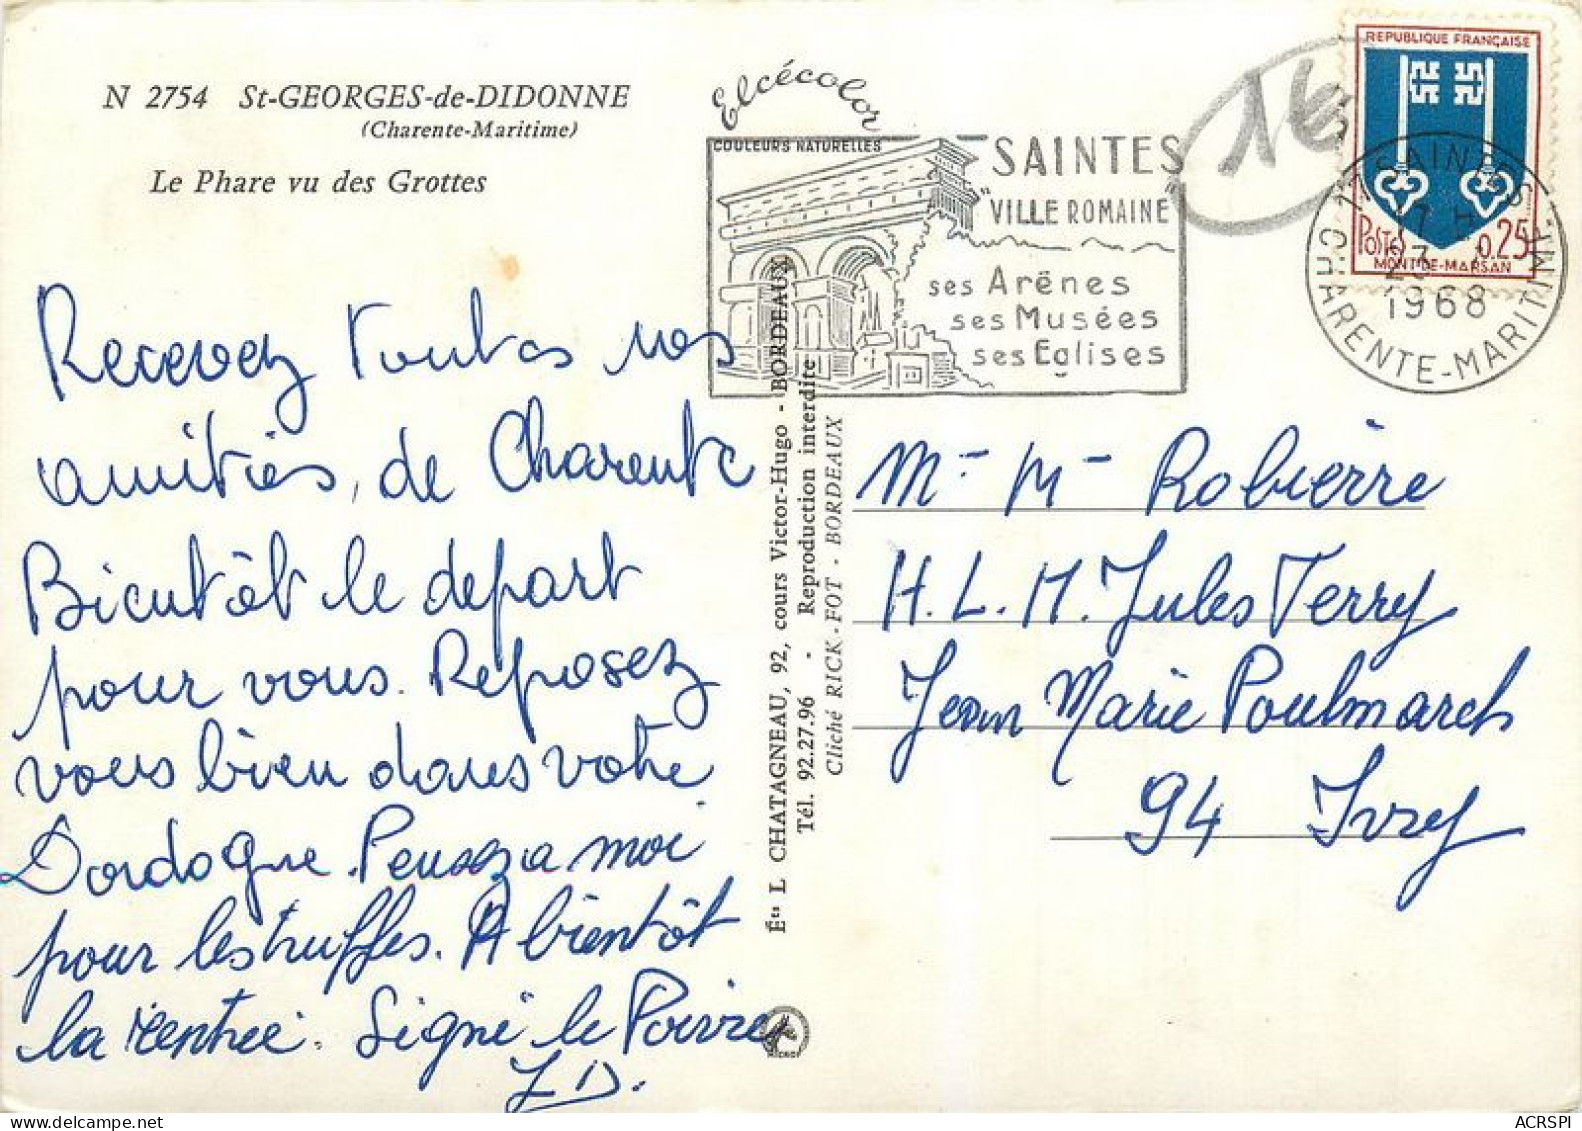 N 2754 St-GEORGES-de-DIDONNE
(Charente-Maritime)
Le Phare vu des Grottes
Elcécolor
COULEURS NATURELLES
SAINTES
"VILLE ROMAINE"
ses Arènes
ses Musées
ses Eglises
16
REPUBLIQUE FRANÇAISE
POSTES 0.25
MONT-DE-MARSAN
17 SAINTES
17 H
1968
CHARENTE-MARITIME
Recevez toutes nos
amitiés, de Charente
Bientôt le depart
pour vous. Reposez
vous bien dans votre
Dordogne. Pensez a moi
pour les truffes. A bientôt
la rentrée. Signé le Poivre
J D.
Éts L CHATAGNEAU, 92, cours Victor-Hugo - BORDEAUX
Tél. 92.27.96 - Reproduction interdite
Cliché RICK-FOT - BORDEAUX
Mr - Mme Robierre
H.L.M. Jules Ferry
Jean Marie Poulmarch
94 Ivry
ACRSPI